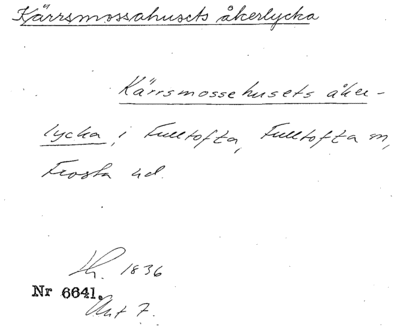 Kärrsmossahusets åkerlycka
Kärrsmossehusets åker-
lycka, i Fulltofta, Fulltofta sn,
Frosta hd.
Lh. 1836
Nr 6641.
Akt 7.